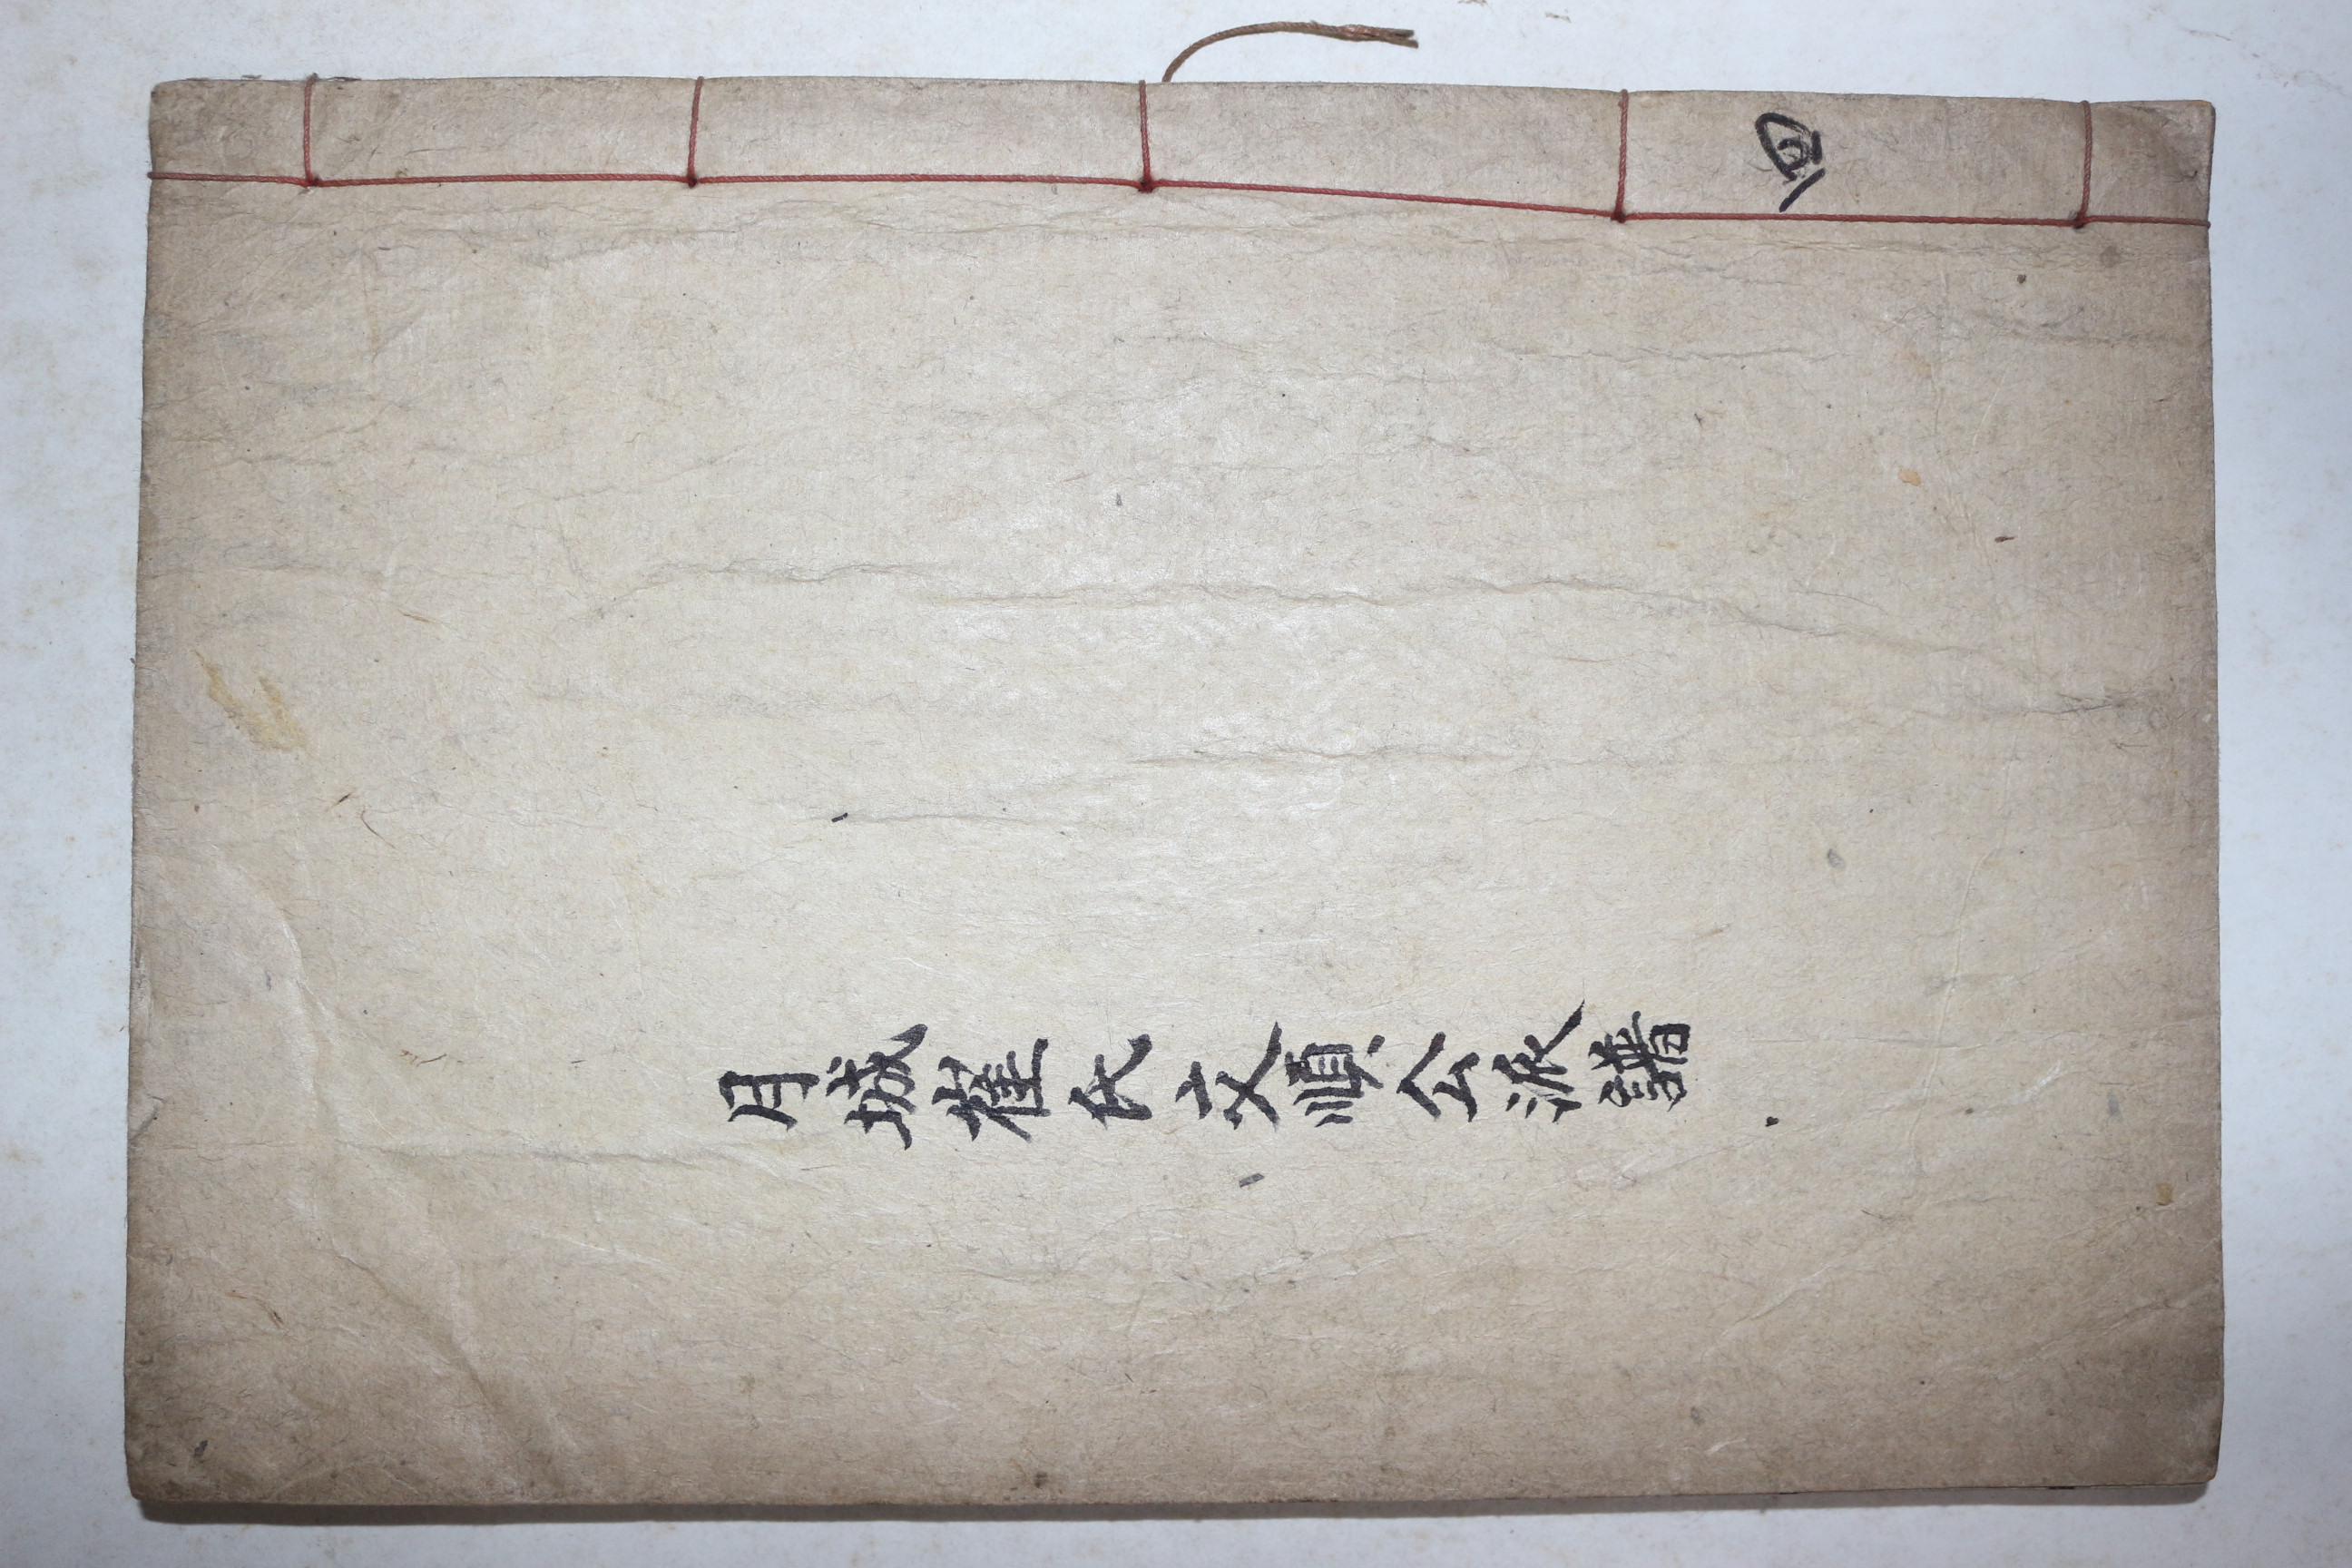 月城崔氏文順公派譜